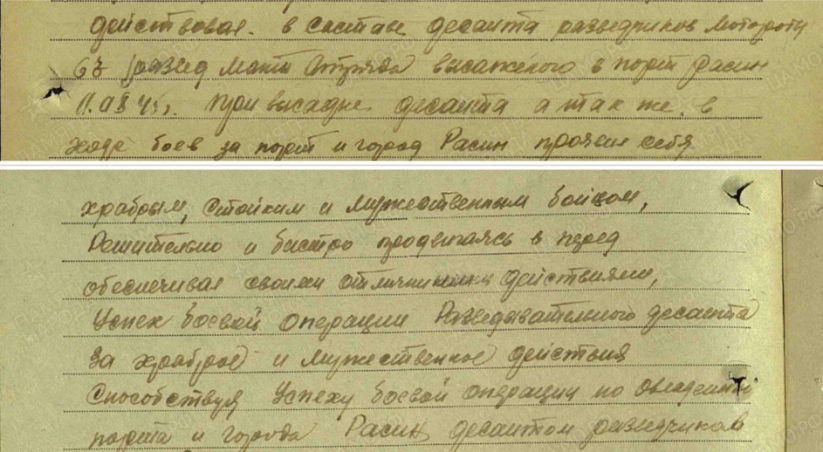 действовал в составе десанта разведчиков мотороты
развед высаженого в порт Расин
11.08.45г. При высадке десанта а так же в
ходе боев за порт и город Расин проявил себя
храбрым, стойким и мужественным бойцом,
Решительно и быстро продвигаясь в перед
обеспечивал своими отличными действиями,
Успех боевой операции Разведывательного десанта
За храброе и мужественное действия
Способствуя Успеху боевой операции по овладению
порта и города Расин десантом разведчиков